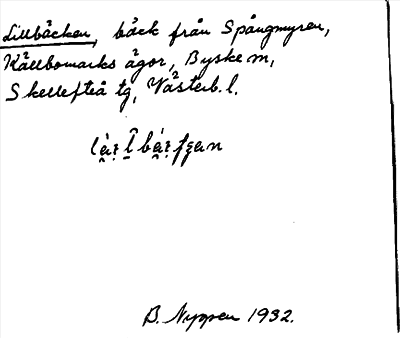 Lillbäcken, bäck från Spångmyren,
Källbomarks ägor, Byske sn,
Skellefteå tg, Västerb. l.
B. Nygren 1932.